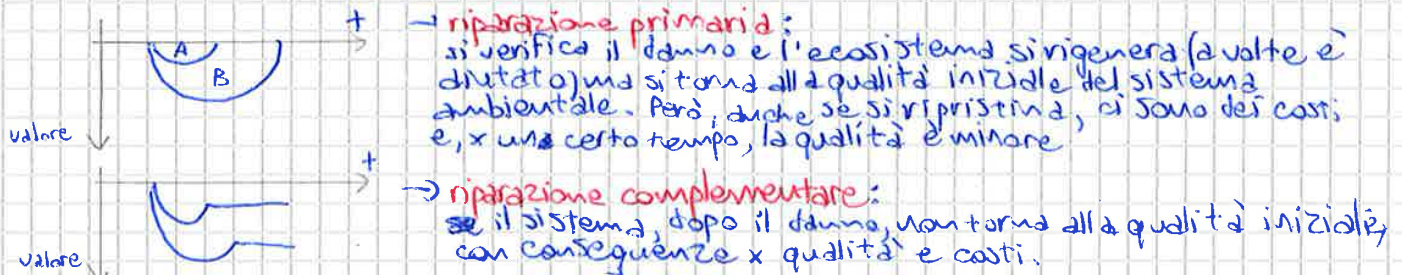 → riparazione primaria:
si verifica il danno e l'ecosistema si rigenera (a volte è
aiutato) ma si torna alla qualità iniziale del sistema
ambientale. Però, anche se si ripristina, ci sono dei costi
e, x una certo tempo, la qualità è minore
+
A
B
valore
→ riparazione complementare:
se il sistema, dopo il danno, non torna alla qualità iniziale,
con conseguenze x qualità e costi.
+
valore